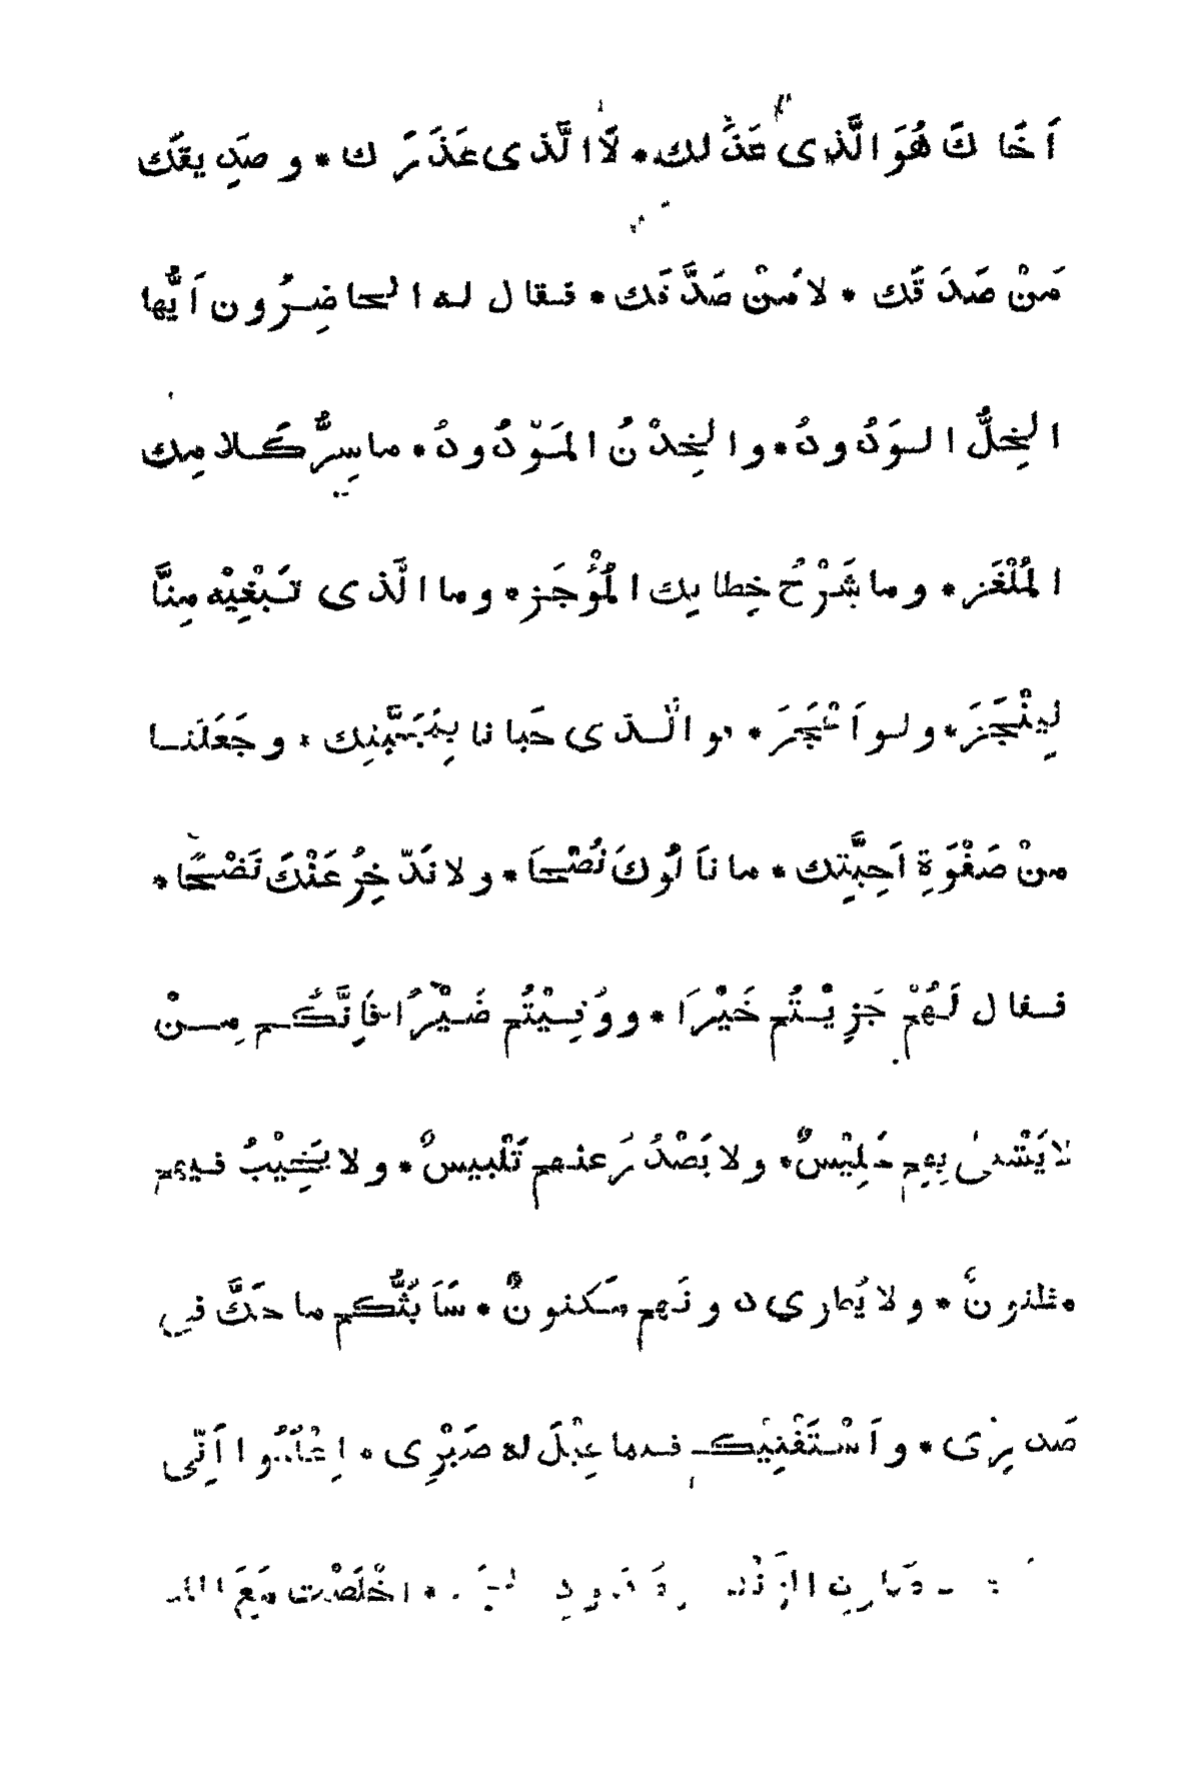 اَخَاكَ هُوَ الَّذى عَذَلك * لَا الَّذى عَذَرَك * وصَدِيقَك
مَنْ صَدَقَك * لا مَنْ صَدَّقَك * فقال له الحاضِرُون اَيُّها
الخِلُّ الوَدُودُ * والخِدْنُ المَوْدُودُ * ما سِرُّ كَلامِك
المُلْغَز * وما شَرْحُ خِطابِك المُؤْجَز * وما الَّذى تَبْغِيْه مِنَّا
لِيُنْجَزَ * ولو اَعْجَزَ * فوالَّذى حَبانا بِمَحَبَّتِك * وجَعَلَنا
مِنْ صَفْوَةِ اَحِبَّتِك * ما نَاَلُوكَ نُصْحاً * ولا نَدَّخِرُ عَنْكَ نَضْحًا *
فقال لَهُمْ جَزِيْتُم خَيْراً * ووُقِيْتُم ضَيْرًا فَاِنَّكُم مِمنْ
لا يَشْقى بِهِم جَلِيْسٌ * ولا يَصْدُرُ عنهم تَلْبيسٌ * ولا يَخِيْبُ فيهم
مظنونٌ * ولا يُطوى دونَهم مَكنونٌ * سَاَبُثُّكم ما حَكَّ فى
صَدرِى * واَسْتَفْتِيْكم فيما عِيْلَ له صَبْرِى * اِعْلَمُوا اَنّى
الزَّنْد * اَخْلَصْت مَعَ الله